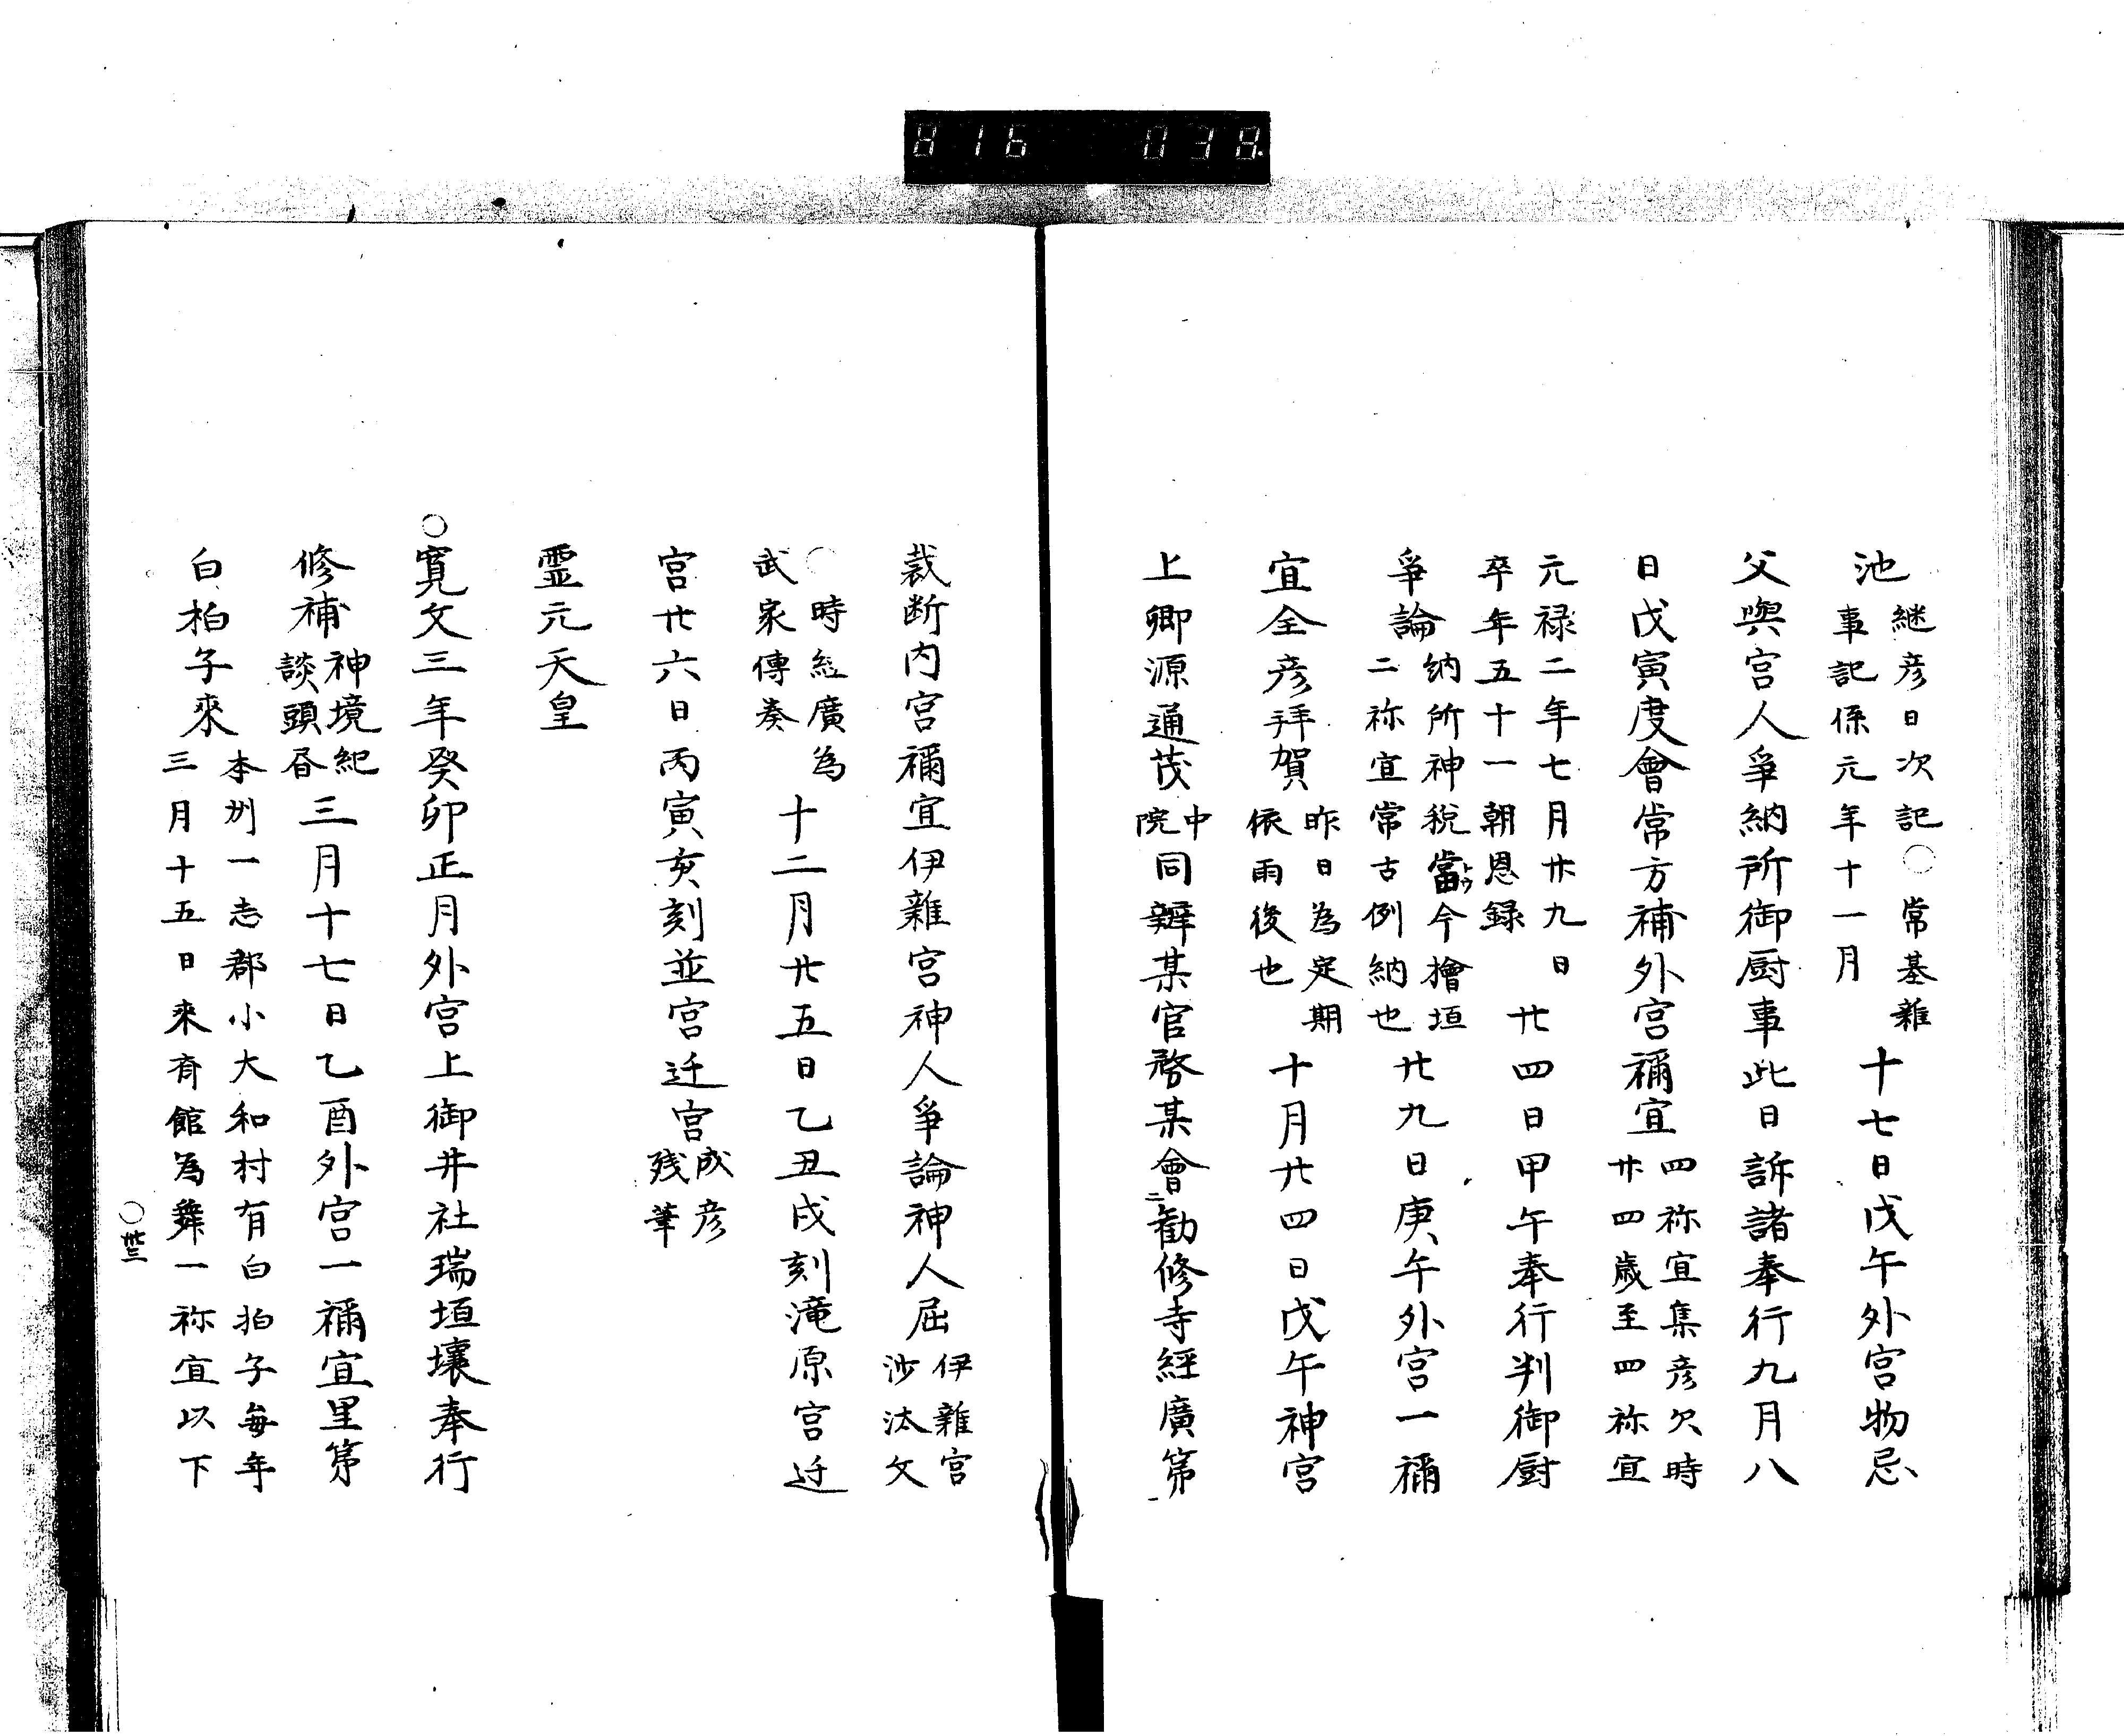 816 038
池 継彦日次記○常基雜事記係元年十一月 十七日戊午外宮物忌
父與宮人爭納所御厨事此日訴諸奉行九月八
日戊寅度會常方補外宮禰宜 四祢宜集彦欠時廾四歳至四祢宜
元禄二年七月廾九日卒年五十一朝恩録 廿四日甲午奉行判御厨
爭論 納所神税當トウ今檜垣二祢宜常古例納也 廿九日庚午外宮一禰
宜全彦拜賀 昨日為定期依雨後也 十月廿四日戊午神宮
上卿源通茂 中院 同辨某官務某會ニ勸修寺經廣第
裁断内宮禰宜伊雜宮神人爭論神人屈 伊雜宮沙汰文
○時經廣為武家傳奏 十二月廿五日乙丑戌刻滝原宮迁
宮廿六日丙寅亥刻並宮迁宮 成彦残筆
霊元天皇
○寛文三年癸卯正月外宮上御井社瑞垣壊奉行
修補 神境紀談頭昏 三月十七日乙酉外宮一禰宜里第
白拍子來 本州一志郡小大和村有白拍子毎年三月十五日来有館為舞一祢宜以下
○卅三